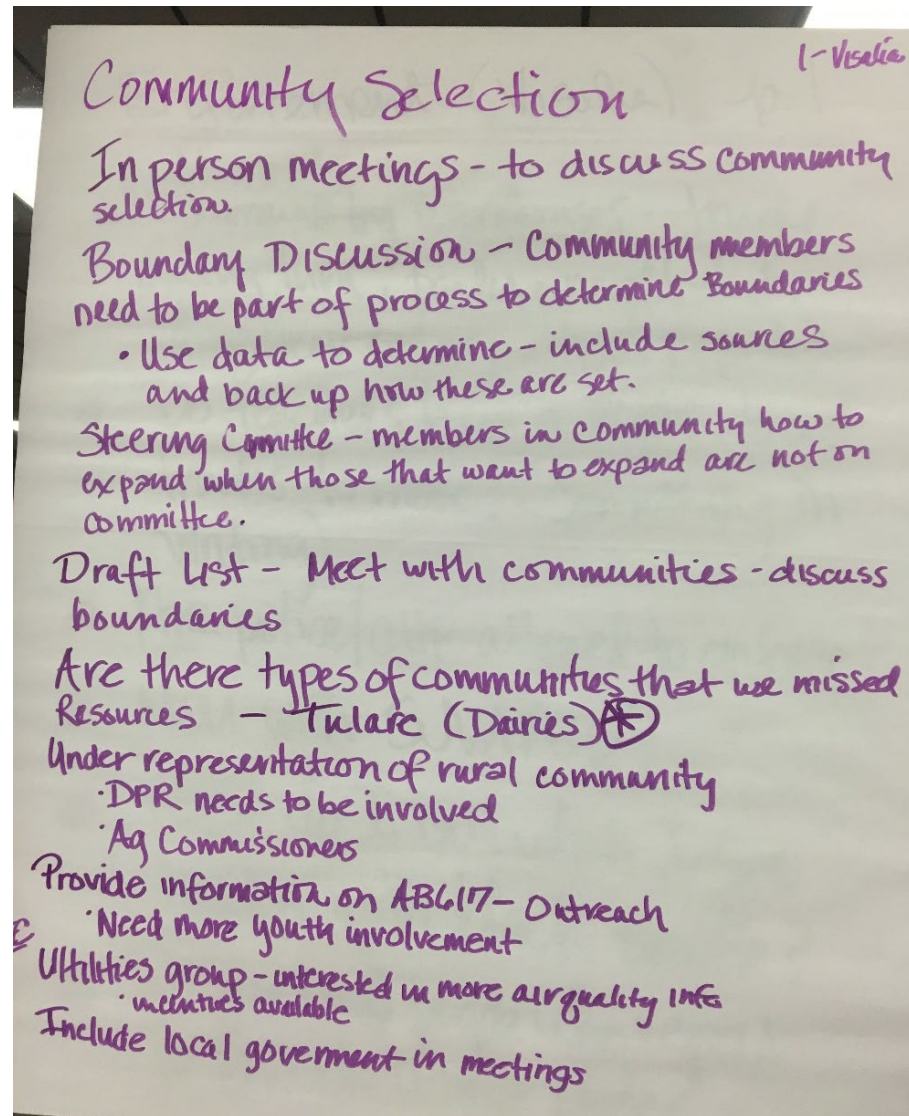 1-Visalia
Community Selection
In person meetings - to discuss community
selection.
Boundary Discussion - Community members
need to be part of process to determine Boundaries
• Use data to determine - include sources
and back up how these are set.
Steering Committe - members in community how to
expand when those that want to expand are not on
committee.
Draft List - Meet with communities - discuss
boundaries
Are there types of communities that we missed
Resources - Tulare (Dairies) *
Under representation of rural community
• DPR needs to be involved
• Ag Commissioners
Provide information on AB617 - Outreach
• Need more youth involvement
Utilities group - interested in more air quality info
• incentives available
Include local goverment in meetings